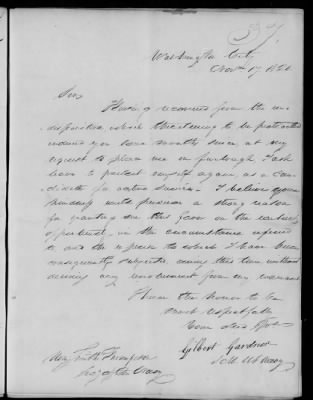 37.
Washington City
Nov. 17 182
Sir
Having recovered from the in-
disposition which threatening to be protracted
induced you some months since at my
request to place me on furlough, I ask
leave to present myself again, as a can-
didate for active service. I believe your
kindness will perceive a strong reason
for granting me this favor on the earliest
opportunity, in the circumstance
and the expense to which I have been
consequently subjected during this time without
deriving any emolument from my
I have the honor to be
most respectfully
Your Obt Svt
Gilbert Gardner
Hon. Smith Thompson
Secy of the Navy